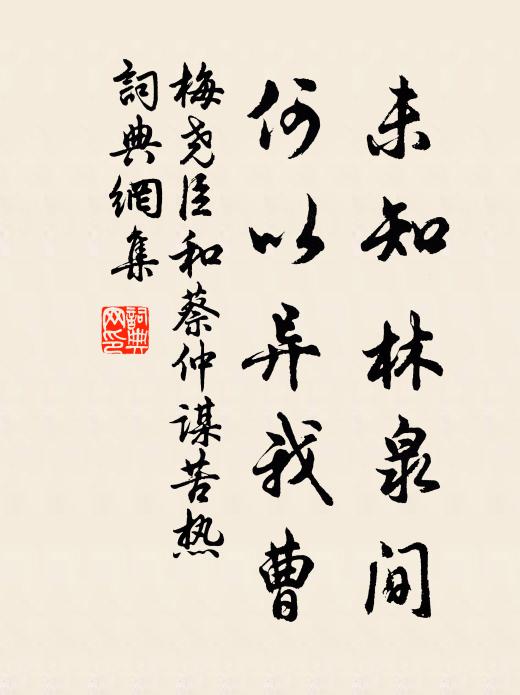 未知林泉间
何以异我曹
梅尧臣和蔡仲谋苦热
詞典網集
詞典
网印